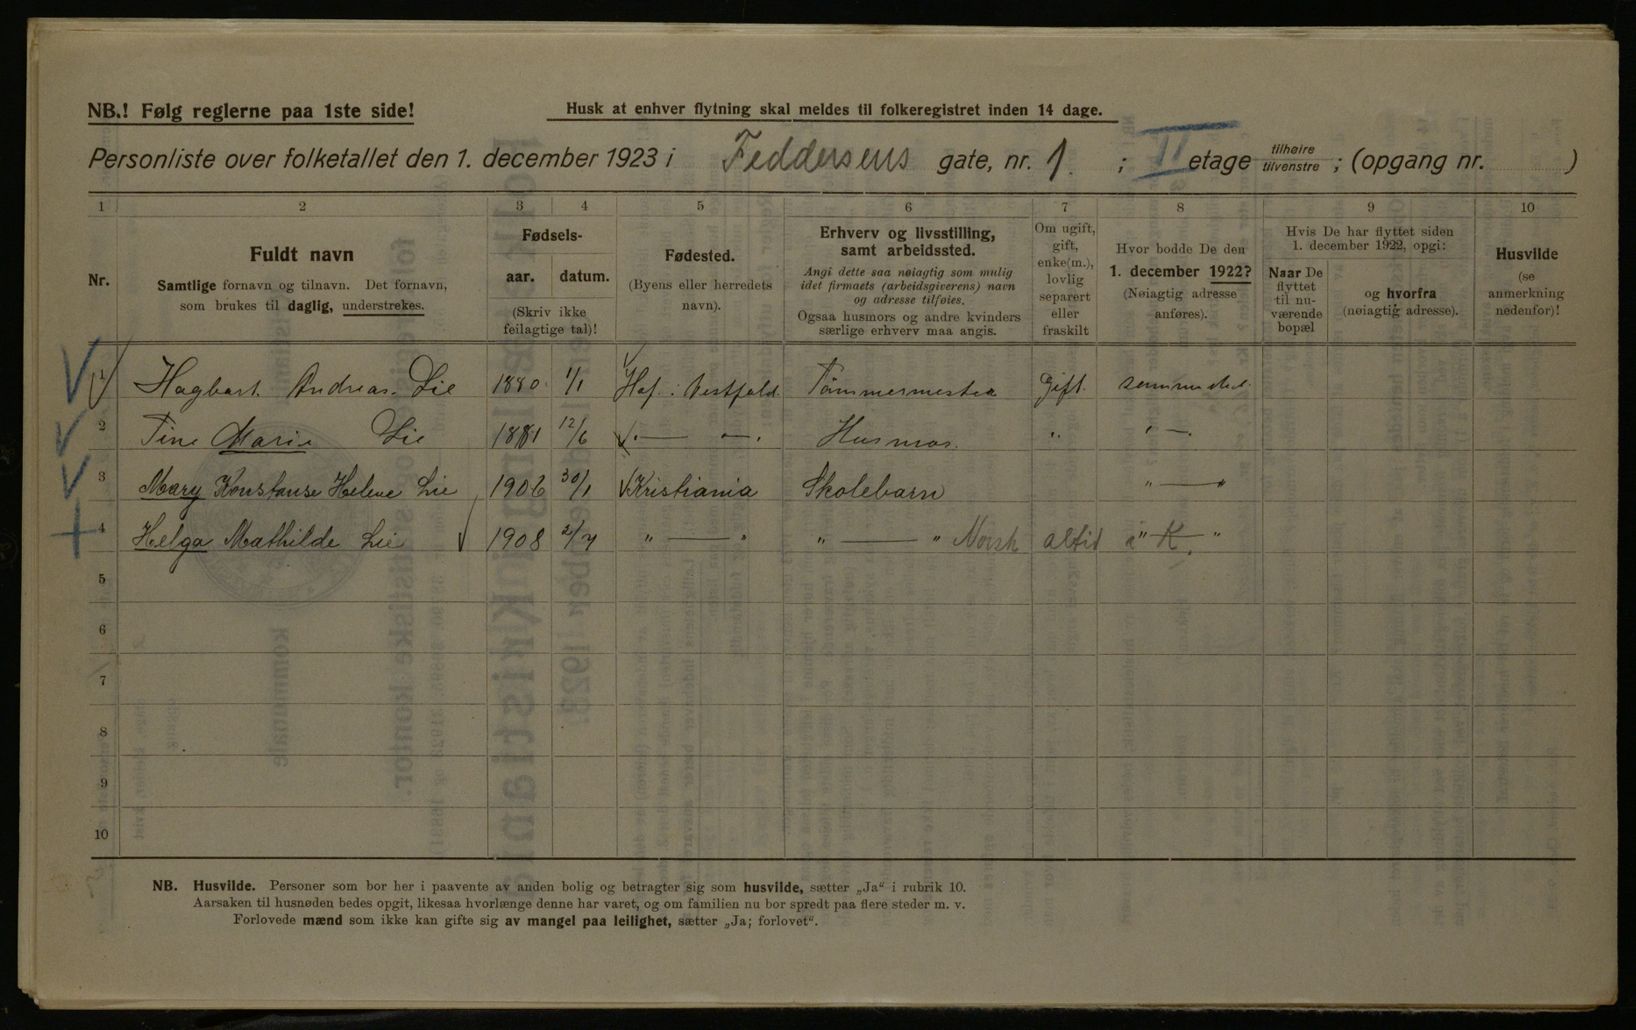 NB.! Følg reglerne paa 1ste side!
Husk at enhver flytning skal meldes til folkeregistret inden 14 dage.
Personliste over folketallet den 1. december 1923 i Feddersens gate, nr. 1. ; II etage tilhøire tilvenstre ; (opgang nr. )
1 2 3 4 5 6 7 8 9 10
Nr.
Fuldt navn
Samtlige fornavn og tilnavn. Det fornavn,
som brukes til daglig, understrekes.
Fødsels-
aar. datum.
(Skriv ikke
feilagtige tal)!
Fødested.
(Byens eller herredets
navn).
Erhverv og livsstilling,
samt arbeidssted.
Angi dette saa nøiagtig som mulig
idet firmaets (arbeidsgiverens) navn
og adresse tilføies.
Ogsaa husmors og andre kvinders
særlige erhverv maa angis.
Om ugift,
gift,
enke(m.),
lovlig
separert
eller
fraskilt
Hvor bodde De den
1. december 1922?
(Nøiagtig adresse
anføres).
Hvis De har flyttet siden
1. december 1922, opgi:
Naar De
flyttet
til nu-
værende
bopæl
og hvorfra
(nøiagtig adresse).
Husvilde
(se
anmerkning
nedenfor)!
1 Hagbart Andreas Lie 1880 1/1 Hof i Vestfold Tømmermester Gift samme sted
2 Tine Marie Lie 1881 12/6 " — " Husmor " " — "
3 Mary Konstanse Helene Lie 1906 30/1 Kristiania Skolebarn " — "
4 Helga Mathilde Lie 1908 2/7 " — " " — " Norsk altid i K. " — "
5
6
7
8
9
10
NB. Husvilde. Personer som bor her i paavente av anden bolig og betragter sig som husvilde, sætter „Ja“ i rubrik 10.
Aarsaken til husnøden bedes opgit, likesaa hvorlænge denne har varet, og om familien nu bor spredt paa flere steder m. v.
Forlovede mænd som ikke kan gifte sig av mangel paa leilighet, sætter „Ja; forlovet“.